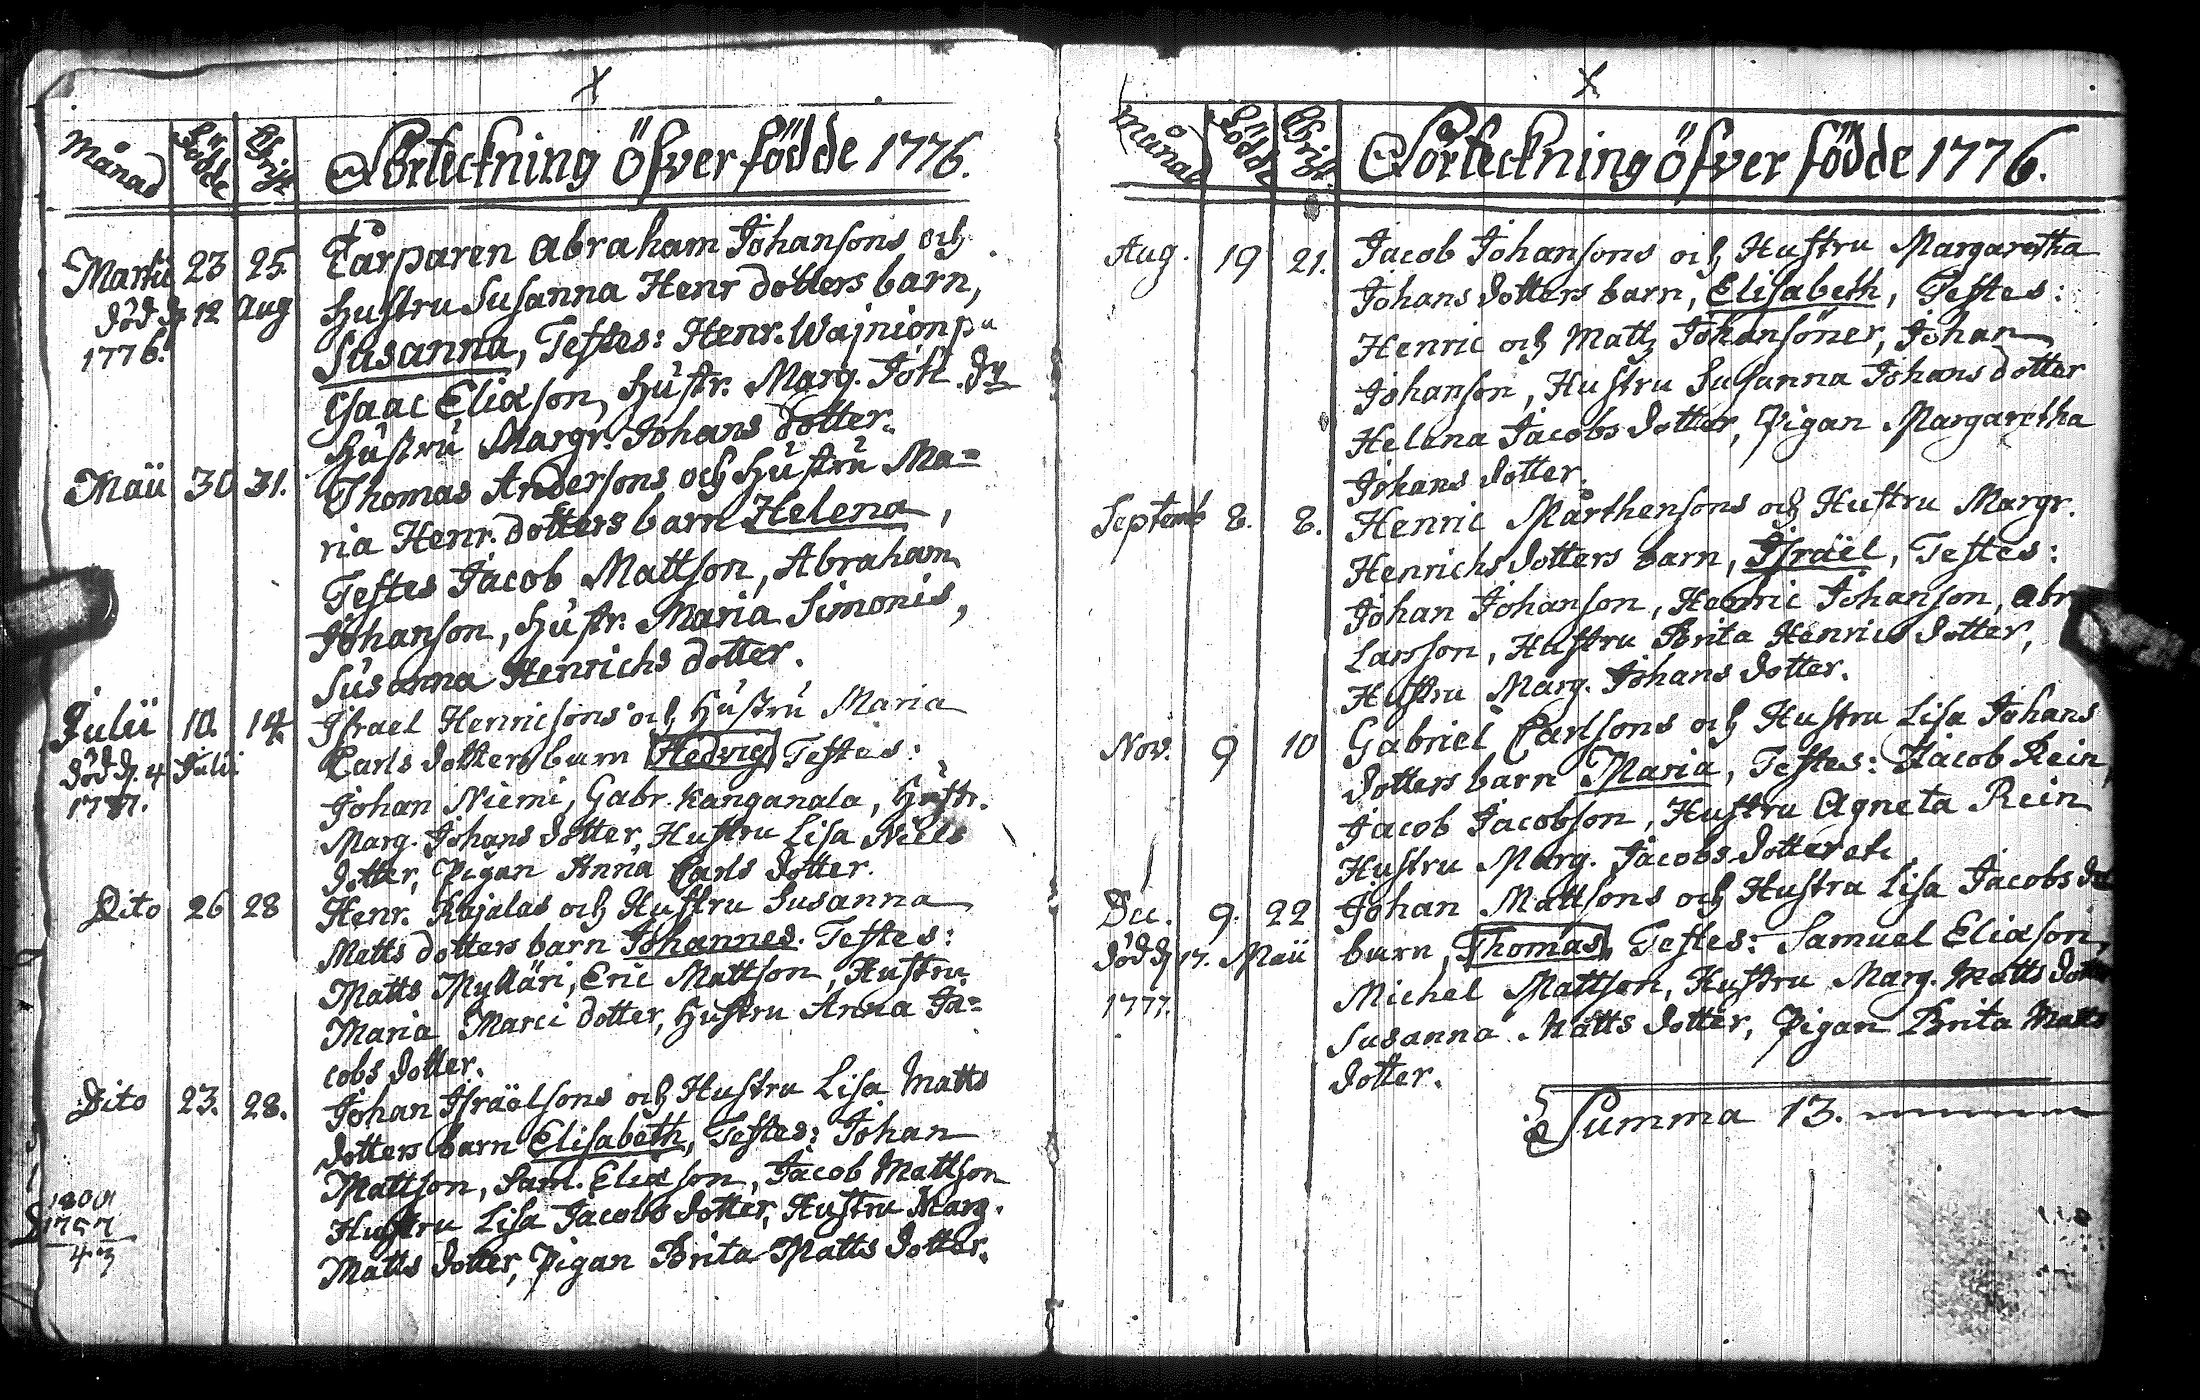 X
Månad
Födde
Christ.
Förteckning öfver födde 1776.
Martii 23 25. Torparen Abraham Johansons och
död d. 12 Aug
1776.
hustru Susanna Henr dotters barn,
Susanna, Testes: Henr. Wajnionpä
Isaac Eliason, hustr. Marg. Joh. dr
hustru Margr. Johans dotter.
Maii 30 31. Thomas Andersons och hustru Ma=
ria Henr. dotters barn Helena,
Testes Jacob Mattson, Abraham
Johanson, hustr. Maria Simonis,
Susanna Henrichs dotter.
Julii 10. 14. Israel Henricsons och hustru Maria
död d. 4 Julii
1777.
Carls dotters barn Hedvig Testes:
Johan Niemi, Gabr. Kanganala, hustr.
Marg. Johans dotter, Hustru Lisa Niels
dotter, Pigan Anna Carls dotter.
Dito 26 28 Henr. Kajalas och Hustru Susanna
Matts dotters barn Johannes. Testes:
Matts Mylläri, Eric Mattson, Hustru
Maria Marci dotter, hustru Anna Ja=
cobs dotter.
Dito 23. 28. Johan Israëlsons och Hustru Lisa Matts
dotters barn Elisabeth, Testes: Johan
Mattson, Saml. Eliason, Jacob Mattson
Hustru Lisa Jacobs dotter, Hustru Marg.
Matts dotter, Pigan Brita Matts dotter.
1800
1757
43
X
Månad
Födde
Christ.
Förteckning öfver födde 1776.
Aug. 19 21. Jacob Johansons och Hustru Margaretha
Johans dotters barn, Elisabeth, Testes:
Henric och Matts Johansöner, Johan
Johanson, Hustru Susanna Johans dotter
Helena Jacobs dotter, Pigan Margaretha
Johans dotter.
Septemb 8. 8. Henric Mårthensons och Hustru Margr.
Henrichs dotters barn, Israël, Testes:
Johan Johanson, Henric Johanson, Abr
Larsson, Hustru Brita Henrics dotter,
Hustru Marg. Johans dotter.
Nov. 9 10 Gabriel Carlsons och Hustru Lisa Johans
dotters barn Maria, Testes: Jacob Rein,
Jacob Jacobson, Hustru Agneta Rein
Hustru Marg. Jacobs dotter etc
Dec. 9. 22 Johan Mattsons och Hustru Lisa Jacobs do
död d. 17. Maii
1777.
barn, Thomas, Testes: Samuel Eliason,
Michel Mattson, Hustru Marg. Matts dotter
Susanna Matts dotter, Pigan Brita Matts
dotter.
Summa 13.